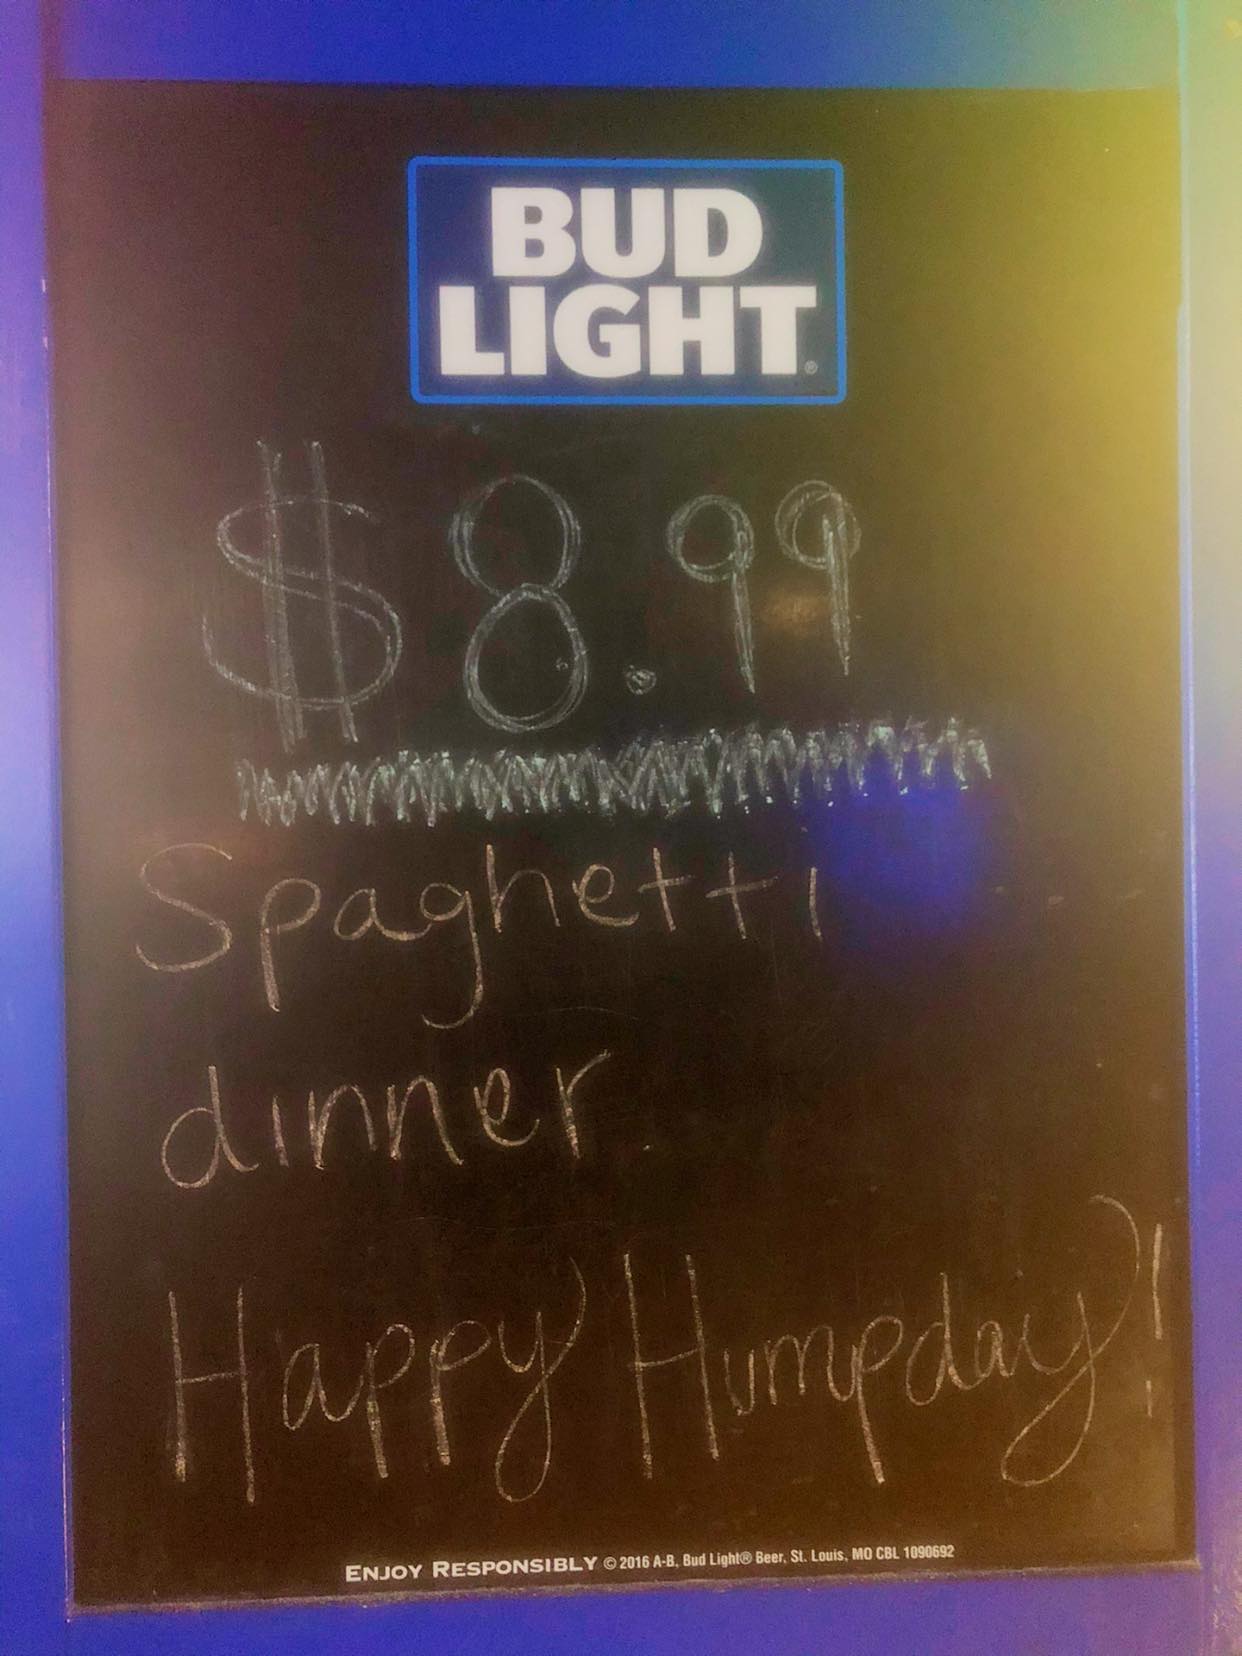 BUD
LIGHT®
$8.99
Spaghetti
dinner
Happy Humpday!
ENJOY RESPONSIBLY © 2016 A-B, Bud Light® Beer, St. Louis, MO CBL 1090692